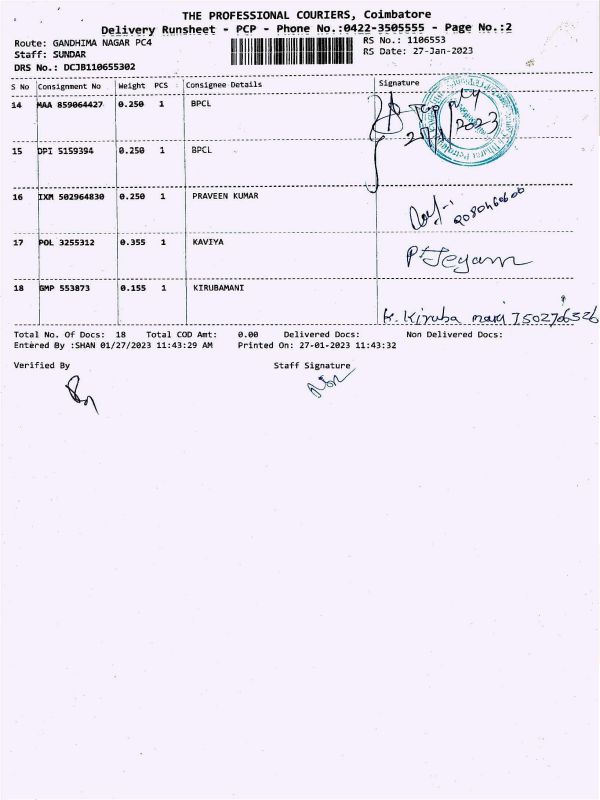 THE PROFESSIONAL COURIERS, Coimbatore
Delivery Runsheet - PCP - Phone No.:0422-3505555 - Page No.:2
Route: GANDHIMA NAGAR PC4
RS No.: 1106553
Staff: SUNDAR
RS Date: 27-Jan-2023
DRS No.: DCJB110655302
S No Consignment No Weight PCS Consignee Details Signature
14 MAA 859064427 0.250 1 BPCL
15 DPI 5159394 0.250 1 BPCL
16 IXM 502964830 0.250 1 PRAVEEN KUMAR
17 POL 3255312 0.355 1 KAVIYA
P. Jeyam
18 GMP 553873 0.155 1 KIRUBAMANI
k. Kiruba mani 7502706526
Total No. Of Docs: 18 Total COD Amt: 0.00 Delivered Docs: Non Delivered Docs:
Entered By :SHAN 01/27/2023 11:43:29 AM Printed On: 27-01-2023 11:43:32
Verified By Staff Signature